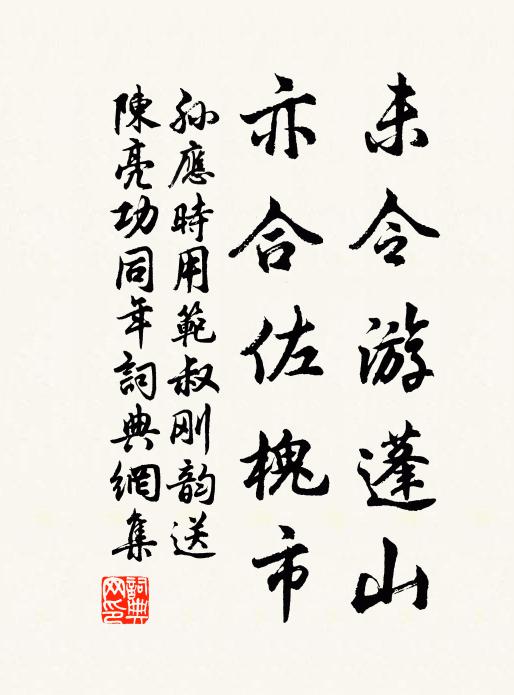 未令游蓬山
亦合佐槐市
孙應時用範叔刚韵送
陳亮功同年詞典網集
詞典网印